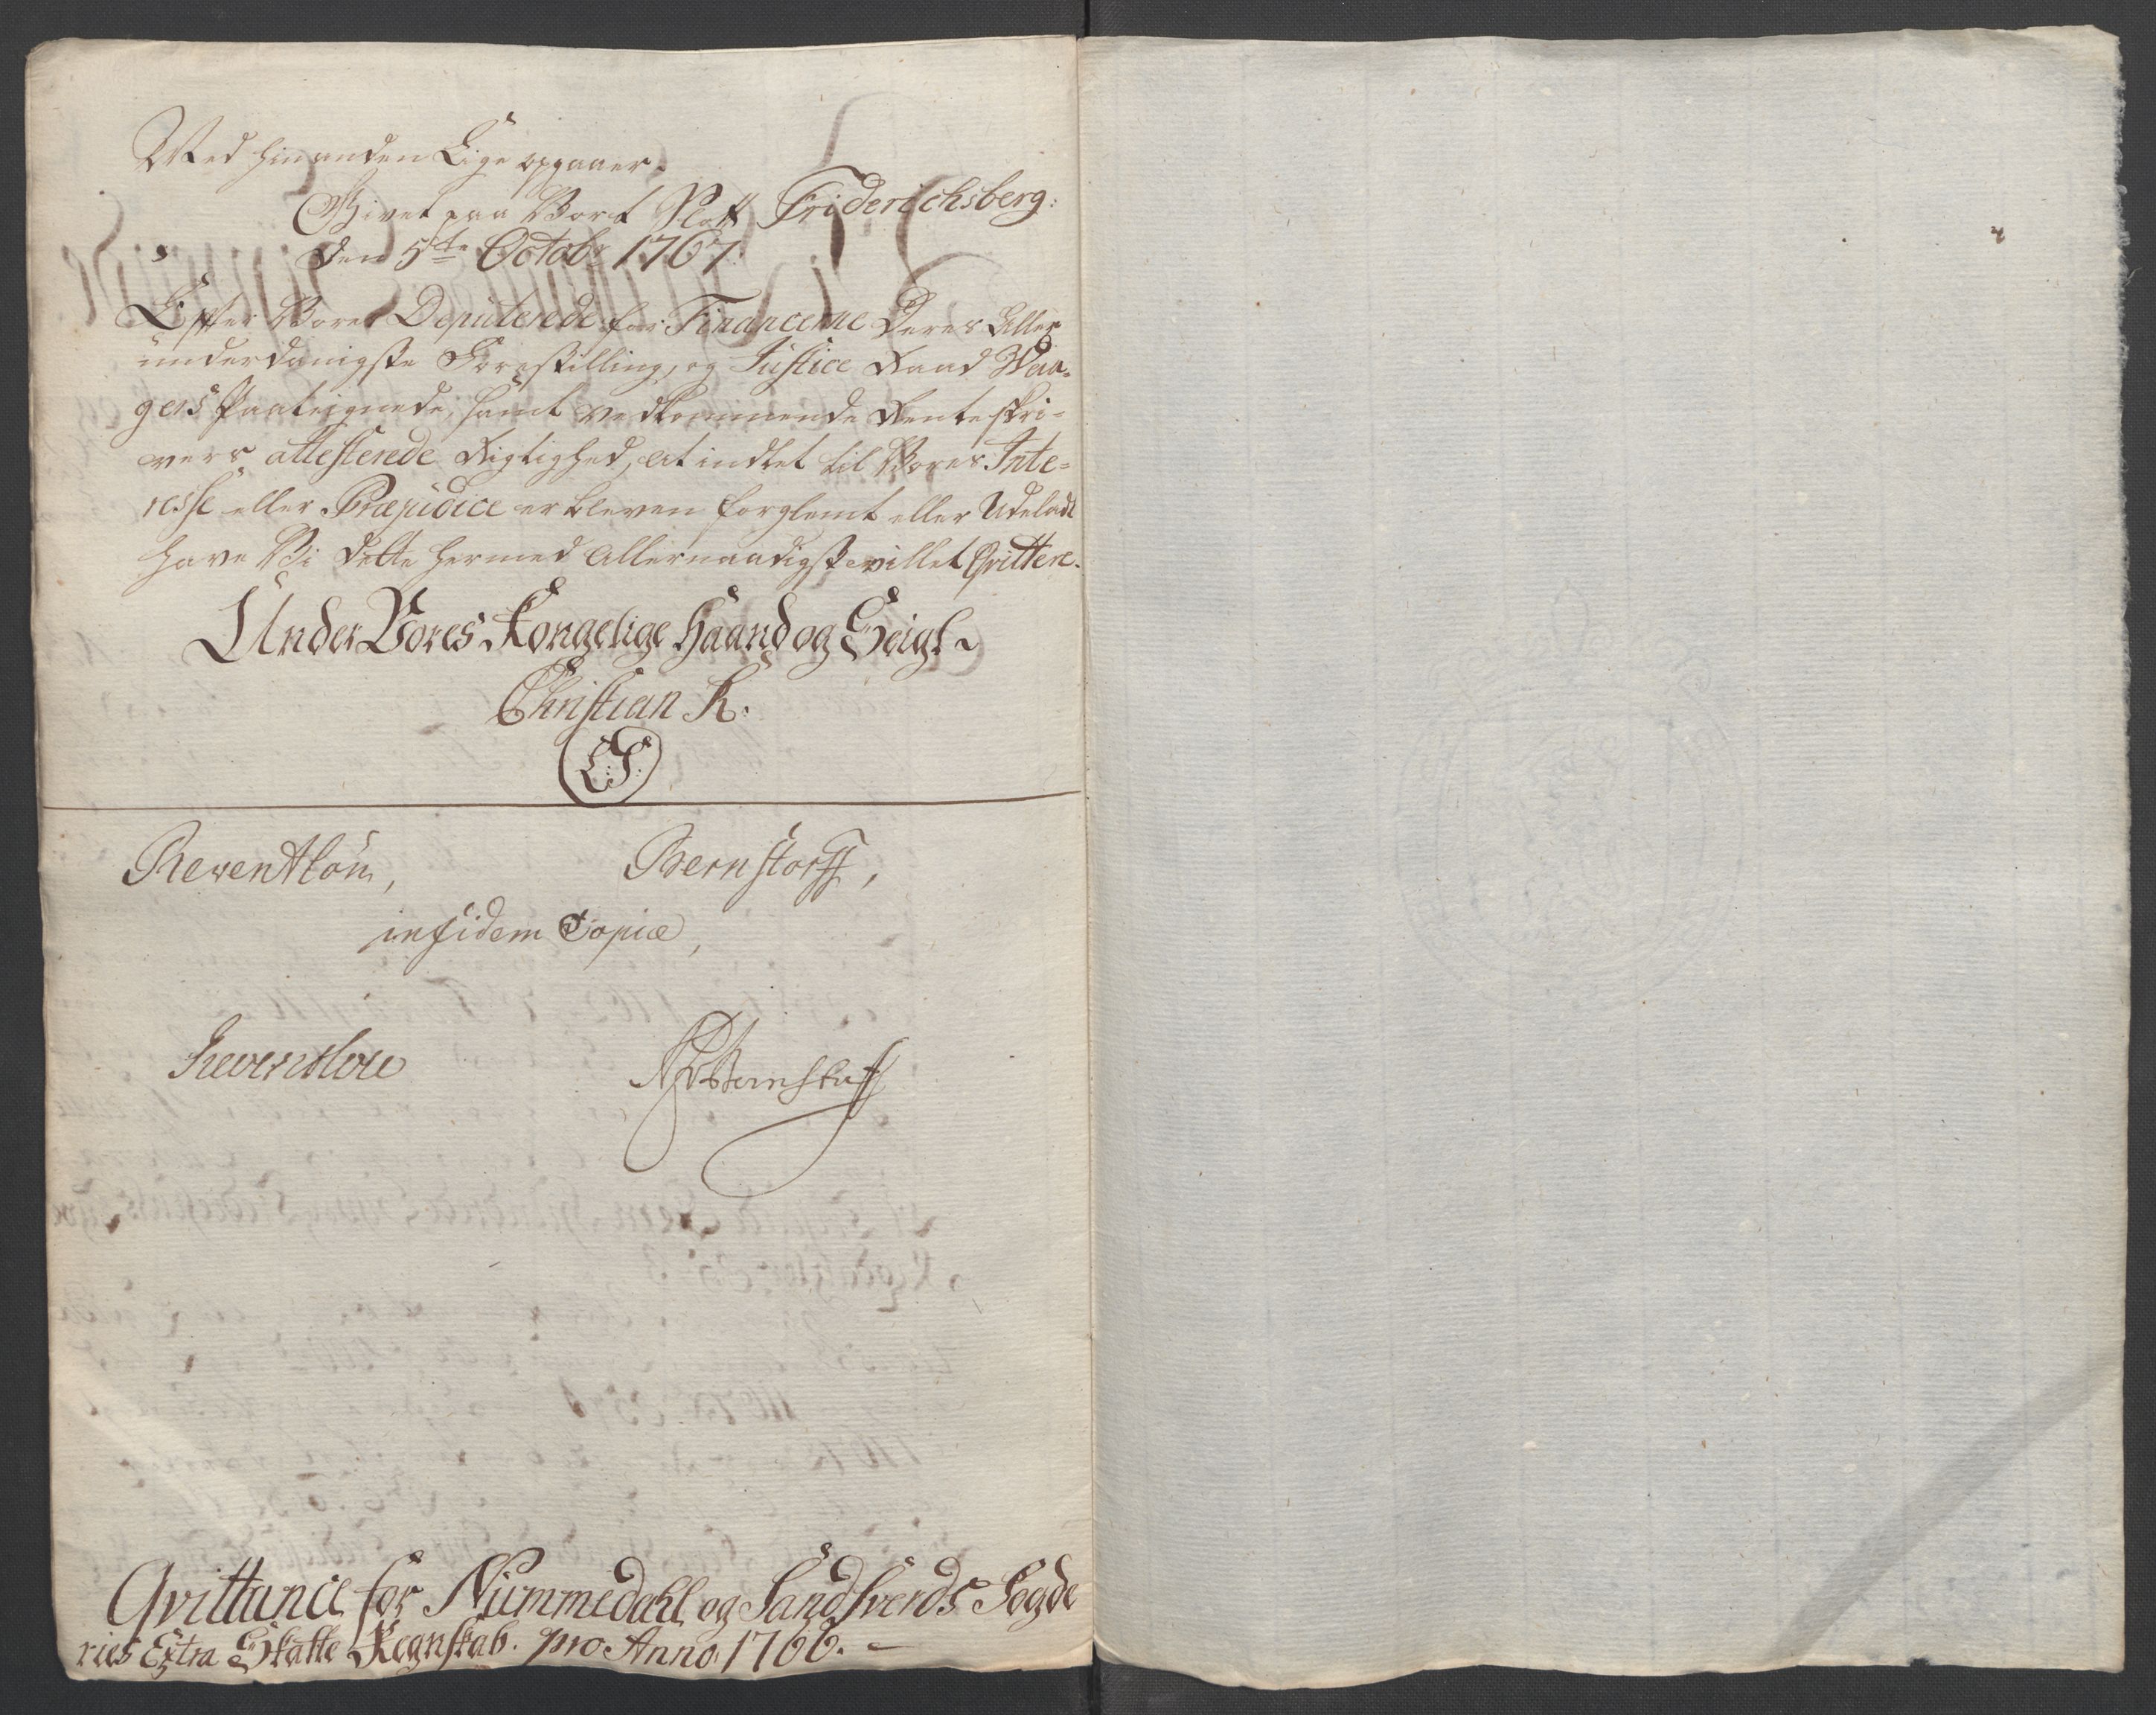 Med hinanden Lige opgaaer.
Givet paa Vort Slott Friderichsberg:
den 5te Octobr 1767.
Efter Vores Deputerede for Financerne Deres Aller
underdanigste Forestilling, og Justice Raad
gers Paategnede, samt vedkommende Renteskri-
vers attesterede Rigtighed, at indtet til Vores Inte-
resse eller Præjudice er bleven forglemt eller Udeladt
have Vi dette hermed Allernaadigst villet Qvittere.
Under Vores Kongelige Haand og Seigl
Christian R.
L:S:
Reventlou, Bernstorff,
in fidem Copiæ,
Reventlou Bernstorff
Qvittance for Nummedahl og Sandsverds Fogde
ries Extra Skatte Regnskab. pro Anno 1766. —